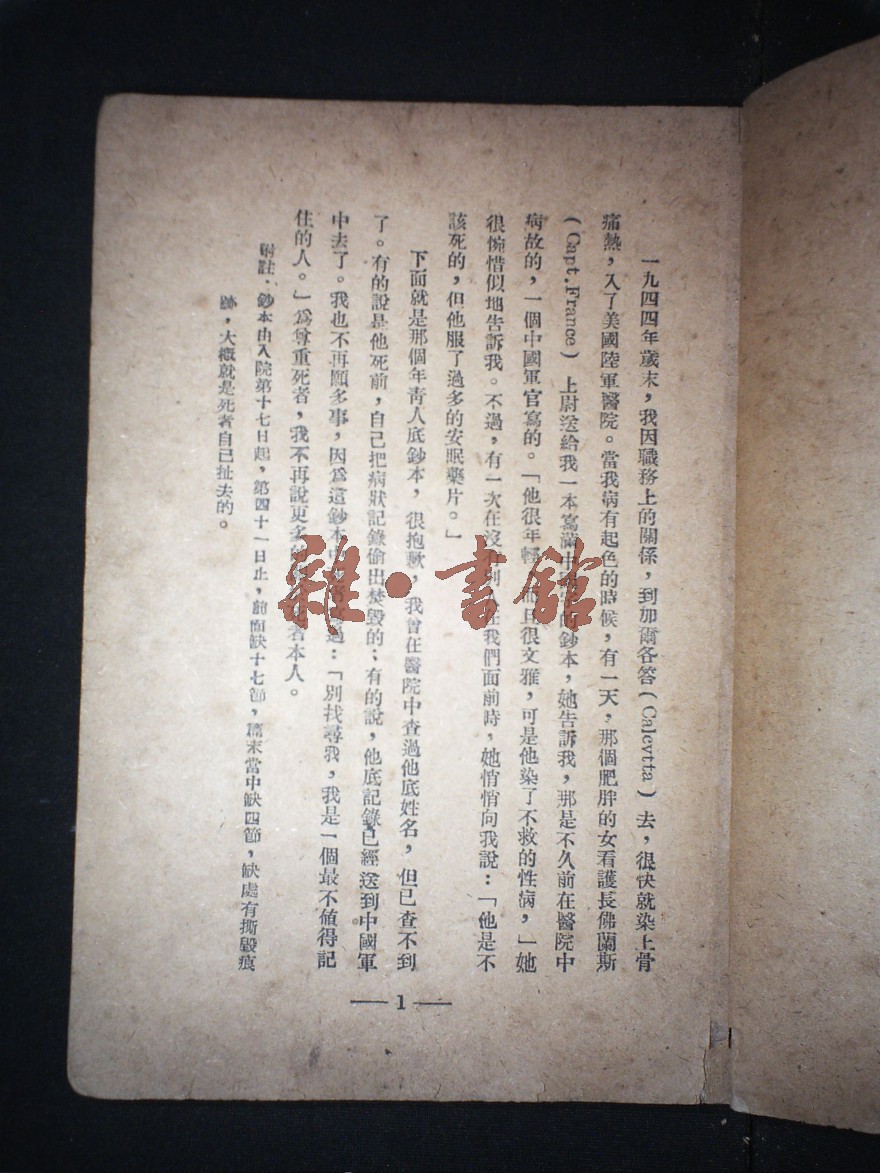 一九四四年歲末，我因職務上的關係，到加爾各答(Calcvtta)去，很快就染上骨
痛熱，入了美國陸軍醫院。當我病有起色的時候，有一天，那個肥胖的女看護長佛蘭斯
(Capt.France)上尉送給我一本寫滿中國字的鈔本，她告訴我，那是不久前在醫院中
病故的，一個中國軍官寫的。「他很年輕，而且很文雅，可是他染了不救的性病，」她
很惋惜似地告訴我。不過，有一次在沒有別人在我們面前時，她悄悄向我說：「他是不
該死的，但他服了過多的安眠藥片。」
下面就是那個年青人底鈔本，很抱歉，我曾在醫院中查過他底姓名，但已查不到
了。有的說是他死前，自己把病狀記錄偷出焚毀的；有的說，他底記錄已經送到中國軍
中去了。我也不再願多事，因爲這鈔本中過：「別找尋我，我是一個最不值得記
住的人。」爲尊重死者，我不再說更多的者本人。
附註：鈔本由入院第十七日起，第四十一日止，前面缺十七節，篇末當中缺四節，缺處有撕毀痕
跡，大概就是死者自己扯去的。
1
雜·書館